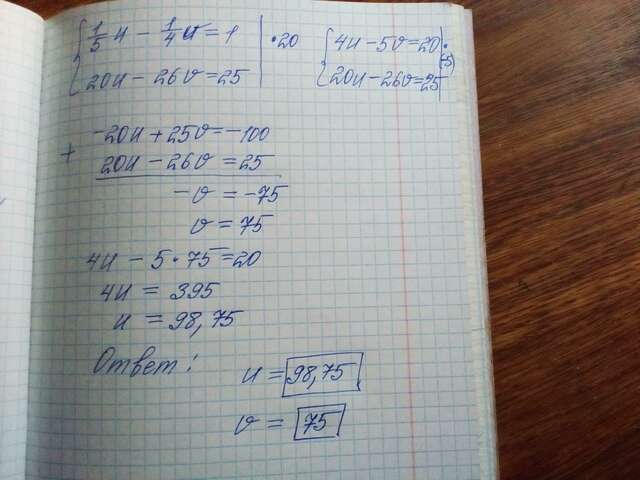 {1/5 u - 1/4 u = 1 | · 20
20u - 26v = 25
{4u - 5v = 20 | · (-5)
20u - 26v = 25
+ -20u + 25v = -100
20u - 26v = 25
-v = -75
v = 75
4u - 5 · 75 = 20
4u = 395
u = 98,75
Ответ:
u = 98,75
v = 75